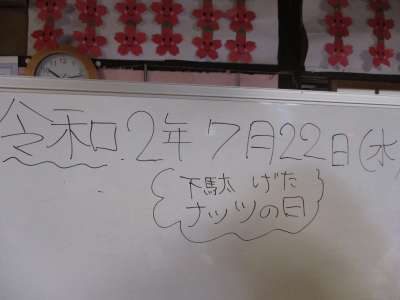 令和2年7月22日(水)
下駄 げた
ナッツの日